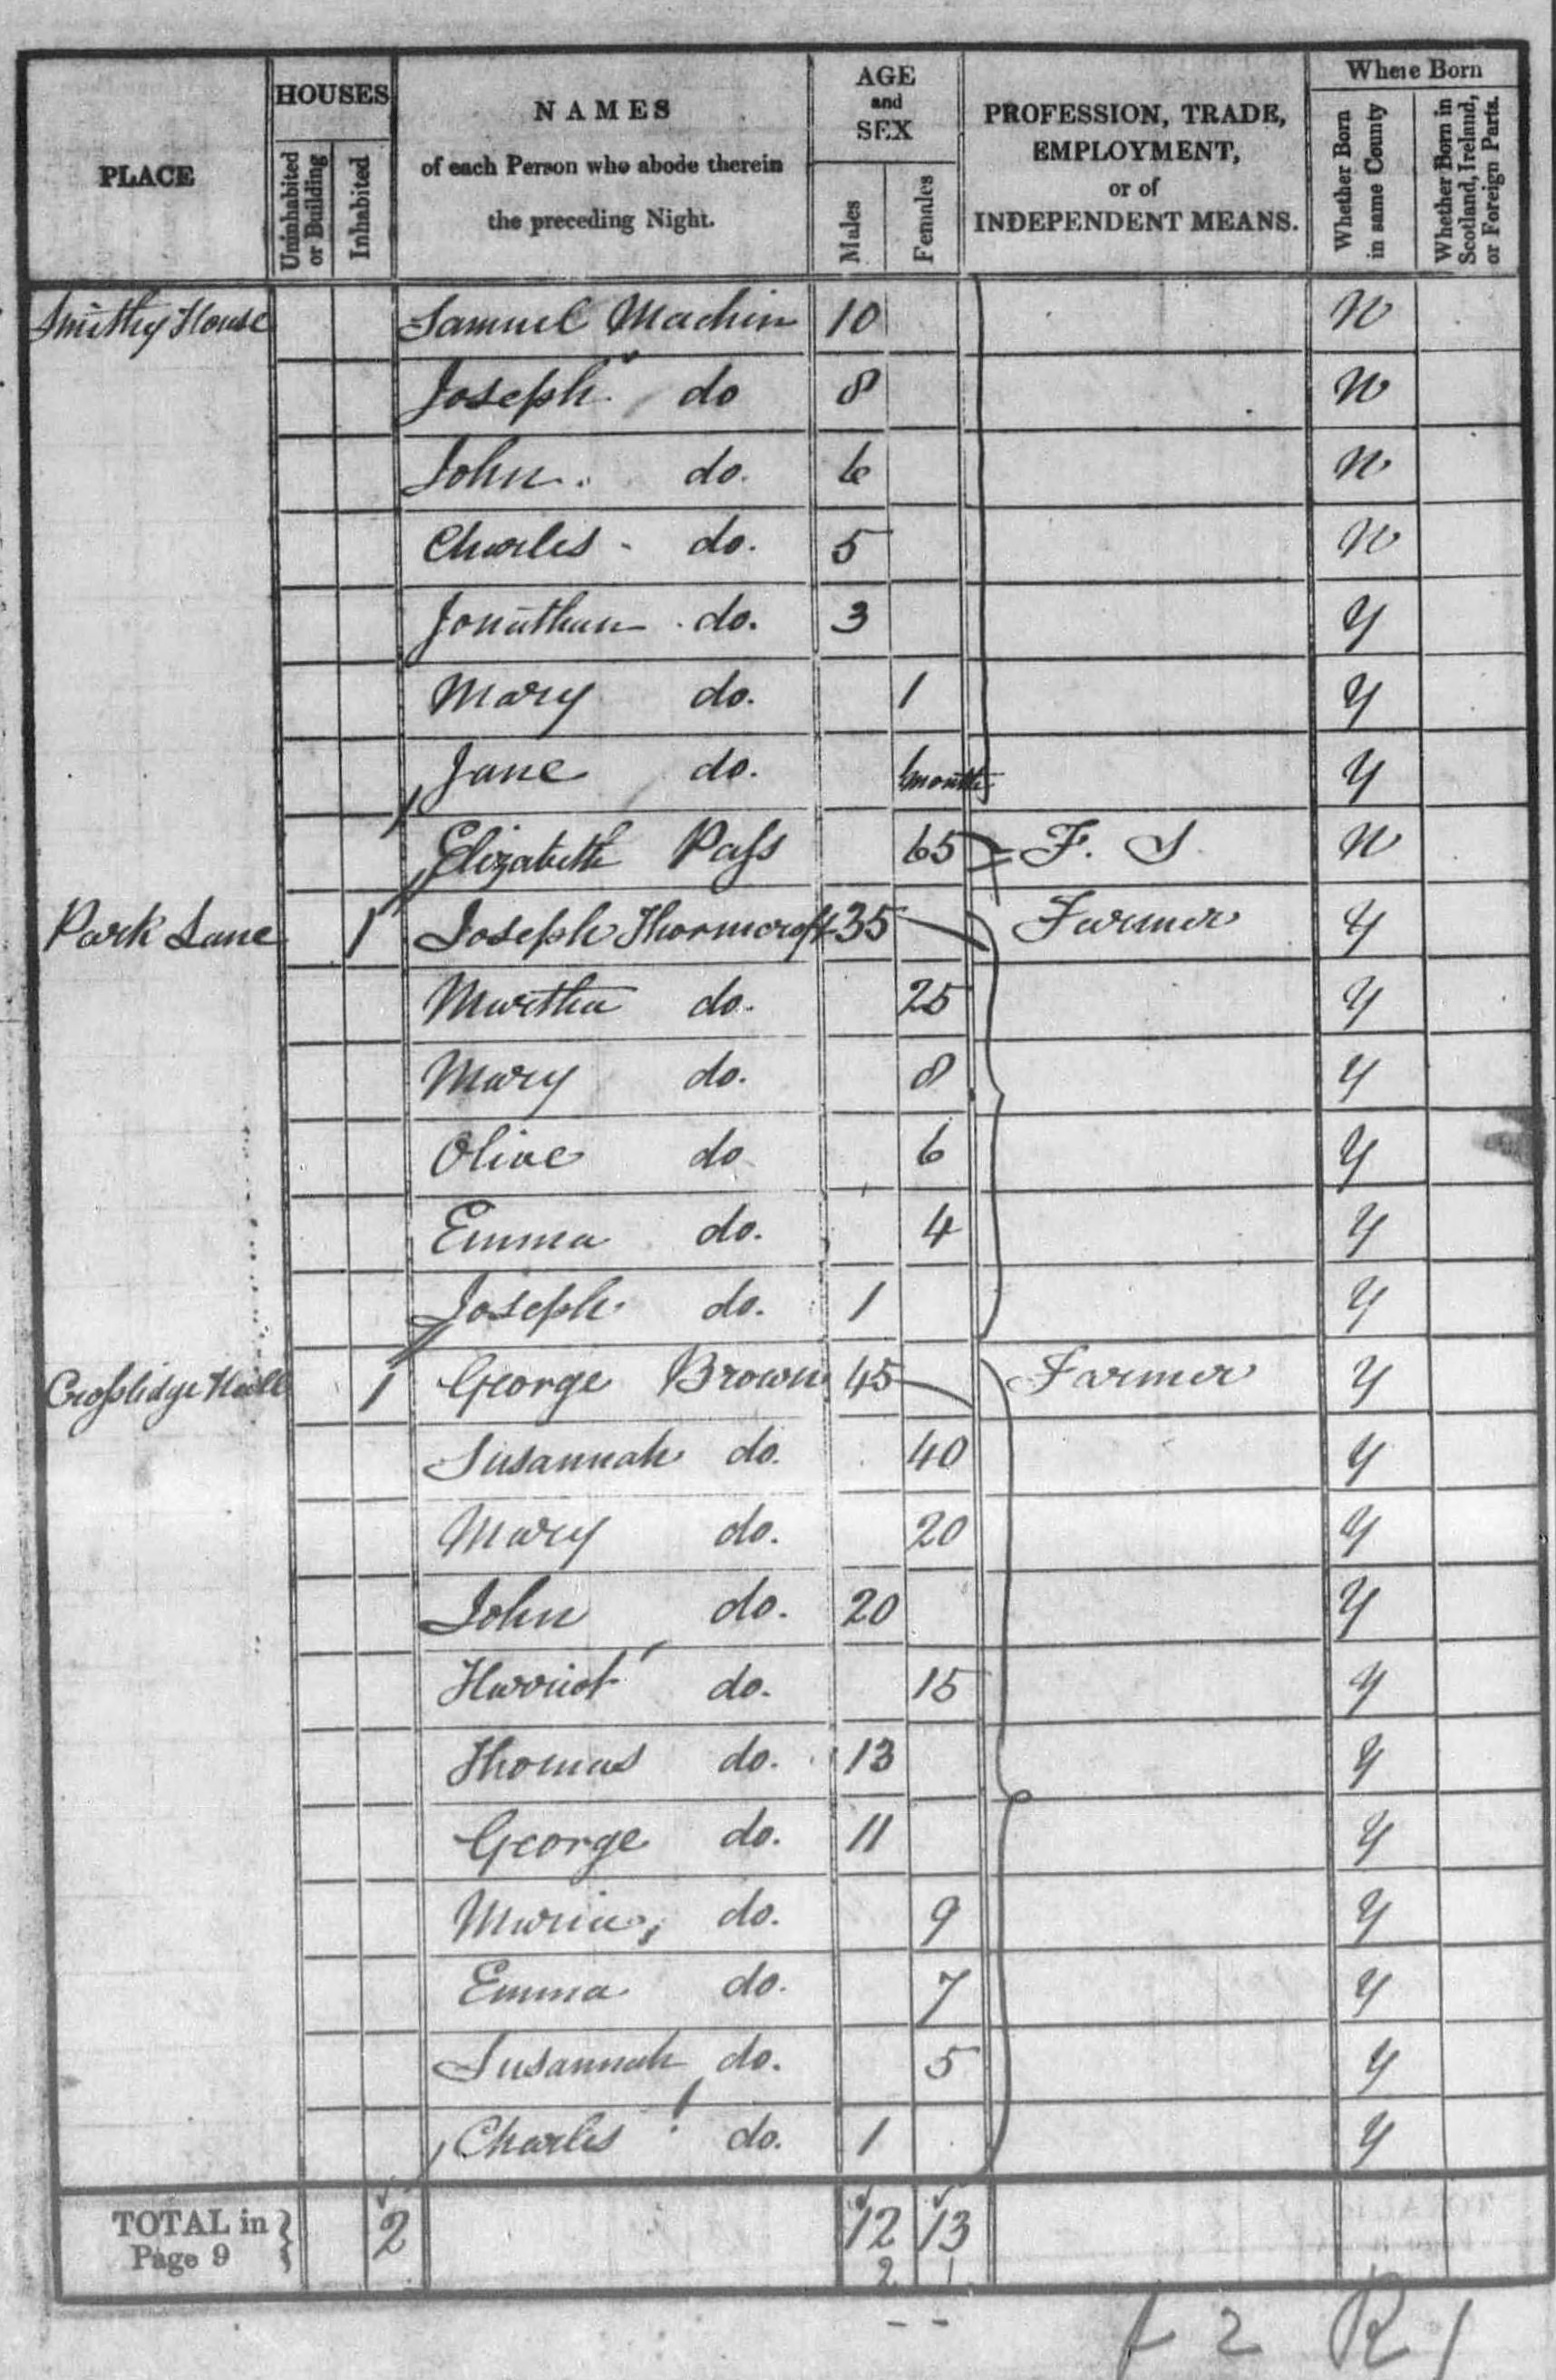 PLACE
HOUSES
Uninhabited or Building
Inhabited
NAMES
of each Person who abode therein
the preceding Night.
AGE
and
SEX
Males
Females
PROFESSION, TRADE,
EMPLOYMENT,
or of
INDEPENDENT MEANS.
Where Born
Whether Born in same County
Whether Born in Scotland, Ireland, or Foreign Parts.
Smithy House Samuel Machin 10 N
Joseph do 8 N
John do. 6 N
Charles do. 5 N
Jonathan do. 3 Y
Mary do. 1 Y
Jane do. months Y
Elizabeth Pass 65 F. S N
Park Lane 1 Joseph Thornicroft 35 Farmer Y
Martha do. 25 Y
Mary do. 8 Y
Olive do 6 Y
Emma do. 4 Y
Joseph do. 1 Y
Crosslidge Hall 1 George Brown 45 Farmer Y
Susannah do. 40 Y
Mary do. 20 Y
John do. 20 Y
Harriot do. 15 Y
Thomas do. 13 Y
George do. 11 Y
Maria do. 9 Y
Emma do. 7 Y
Susannah do. 5 Y
Charles do. 1 Y
TOTAL in
Page 9 2 12 13
2 1
2 R 1